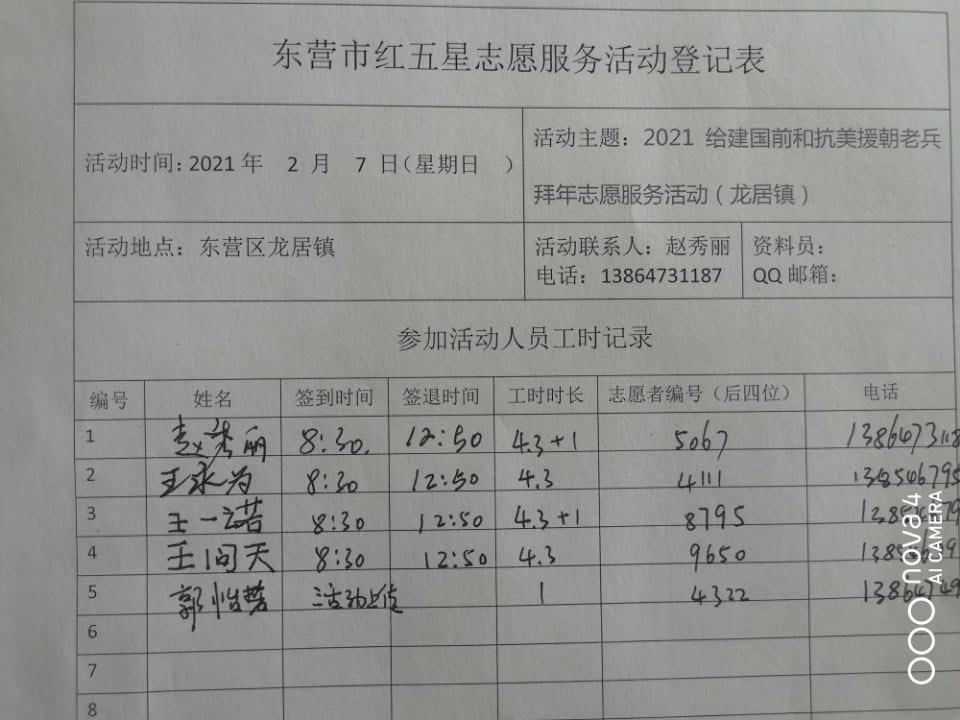 东营市红五星志愿服务活动登记表
活动时间：2021 年 2 月 7 日（星期日 ）
活动主题：2021 给建国前和抗美援朝老兵
拜年志愿服务活动（龙居镇）
活动地点：东营区龙居镇
活动联系人：赵秀丽 资料员：
电话：13864731187 QQ 邮箱：
参加活动人员工时记录
编号 姓名 签到时间 签退时间 工时时长 志愿者编号（后四位） 电话
1 赵秀丽 8:30. 12:50 4.3+1 5067 1386473118
2 王永为 8:30 12:50 4.3 4111 138546795
3 王一诺 8:30 12:50 4.3+1 8795
4 王问天 8:30 12:50 4.3 9650
5 郭怡 活动上传 1 4322
6
7
8
nova 4
AI CAMERA